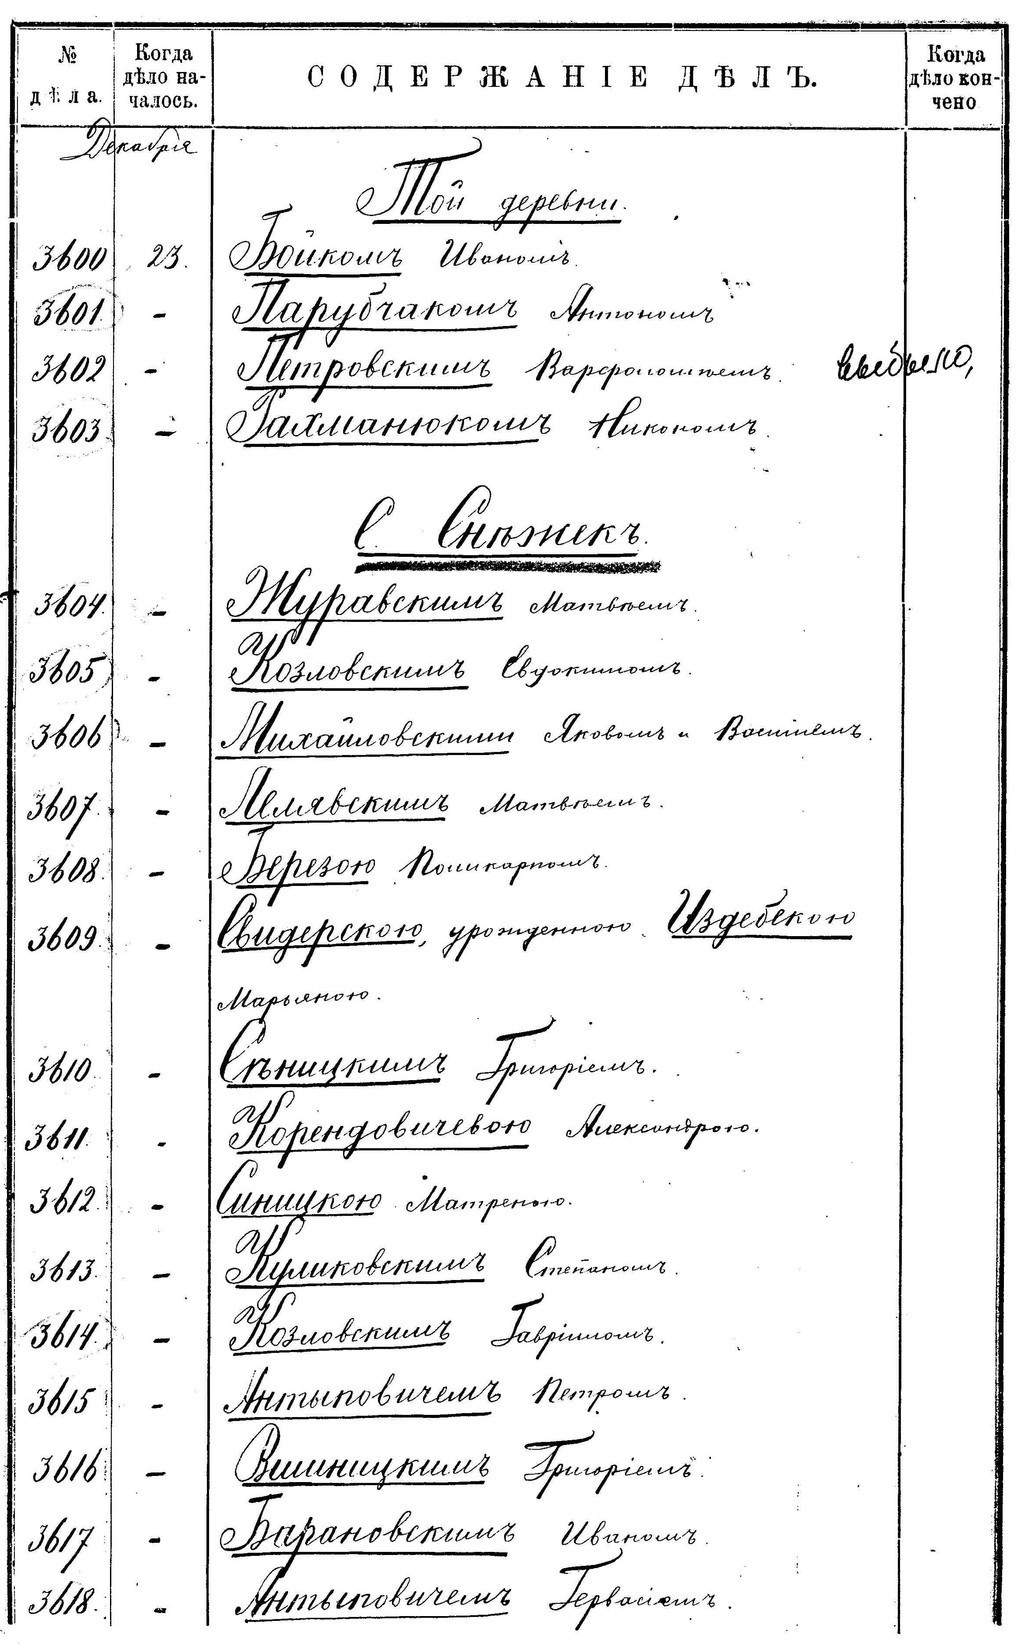 № дѣла.
Когда дѣло на-
чалось.
СОДЕРЖАНІЕ ДѢЛЪ.
Когда дѣло кон-
чено
Декабря
Той деревни.
3600 23. Бойкомъ Иваномъ.
3601 - Парубчакомъ Антономъ
3602 - Петровскимъ Варфоломѣемъ. выбыло,
3603 - Рахманюкомъ Никономъ.
С. Снѣжекъ.
3604. - Журавскимъ Матвѣемъ.
3605 - Козловскимъ Евдокимомъ.
3606 - Михайловскими Яковомъ и Василіемъ.
3607. - Лемявскимъ Матвѣемъ.
3608. - Березою Поликарпомъ.
3609. - Свидерскою, урожденною Издебскою
Марьяною.
3610 - Сѣницкимъ Григоріемъ.
3611. - Корендовичевою Александрою.
3612. - Синицкою Матреною.
3613. - Куликовскимъ Степаномъ.
3614. - Козловскимъ Гавріиломъ.
3615 - Антыповичемъ Петромъ.
3616 - Григоріемъ.
3617 - Барановскимъ Иваномъ.
3618. - Антыповичемъ Гервасіемъ.